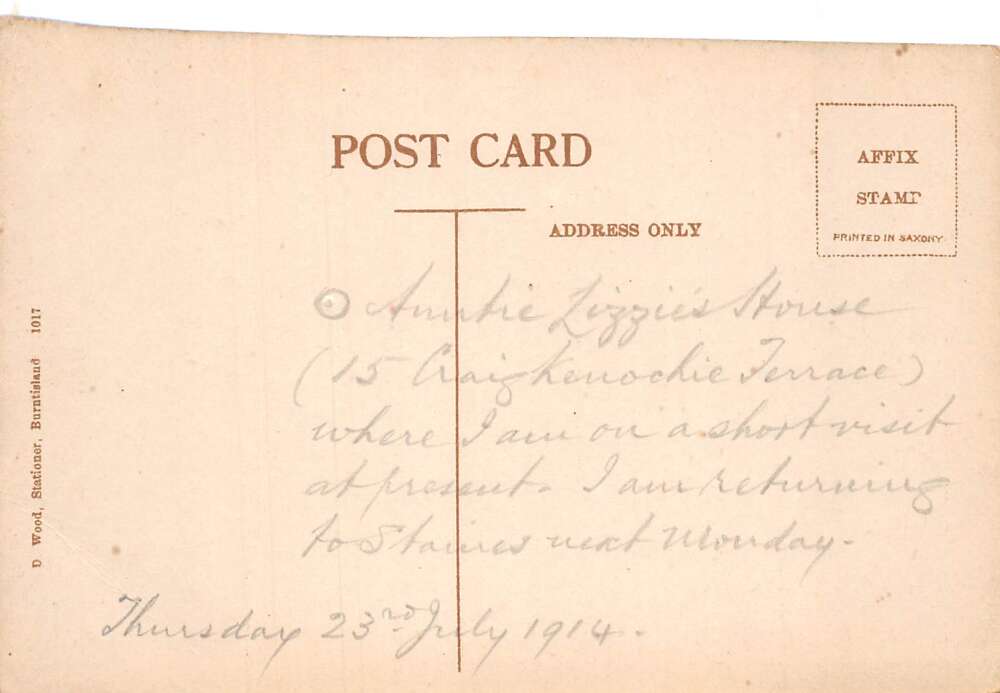 POST CARD
AFFIX
STAMP
PRINTED IN SAXONY
ADDRESS ONLY
O Auntie Lizzie's House
(15 Craigkenochie Terrace)
where I am on a short visit
at present. I am returning
to Staines next Monday.
Thursday 23rd July 1914.
D Wood, Stationer, Burntisland 1017